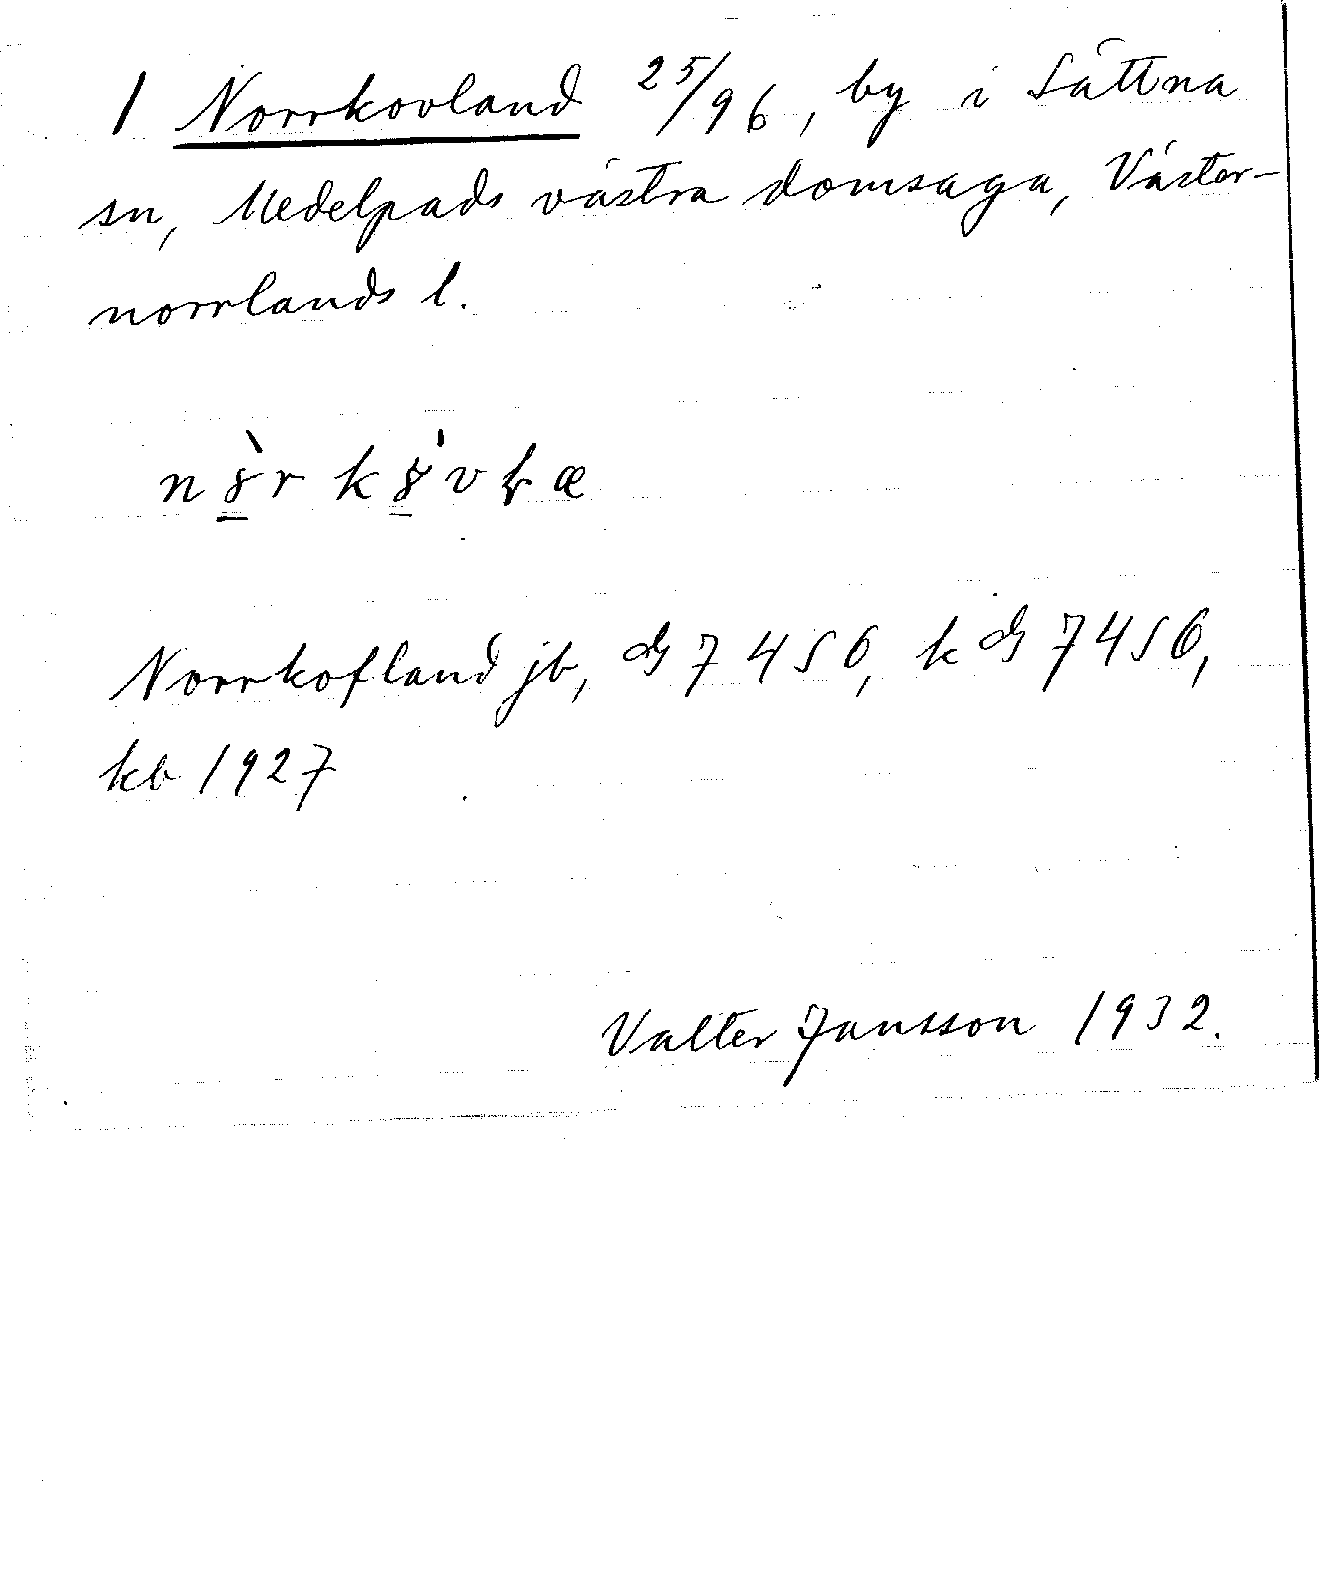 1 Norrkovland 25/96, by i Sättna
sn, Medelpads västra domsaga, Väster-
norrlands l.
Norrkofland jb, ds 7456, k ds 7456,
kb 1927
Valter Jansson 1932.